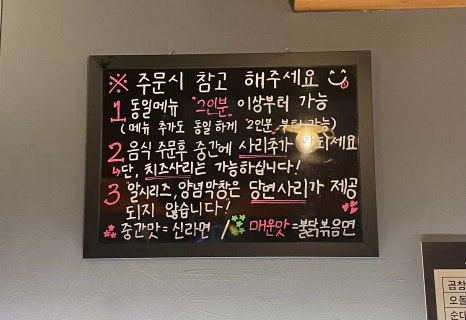 ※ 주문시 참고 해주세요
1 동일메뉴 "2인분" 이상부터 가능
(메뉴 추가도 동일하게 "2인분" 부터 가능)
2 음식 주문후 중간에 사리추가 안되세요
↳단, 치즈사리는 가능하십니다!
3 알시리즈, 양념막창은 당면사리가 제공
되지 않습니다!
중간맛=신라면 / 매운맛=불닭볶음면
곱창
오돌
순대